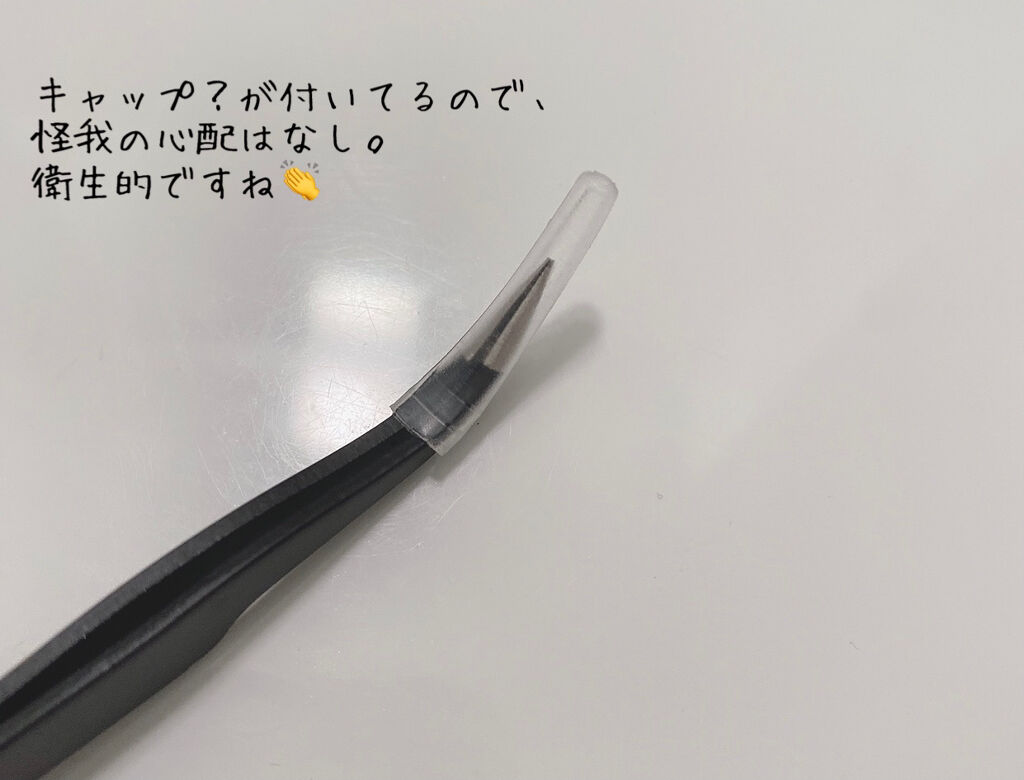 キャップ？が付いてるので、
怪我の心配はなし。
衛生的ですね👏